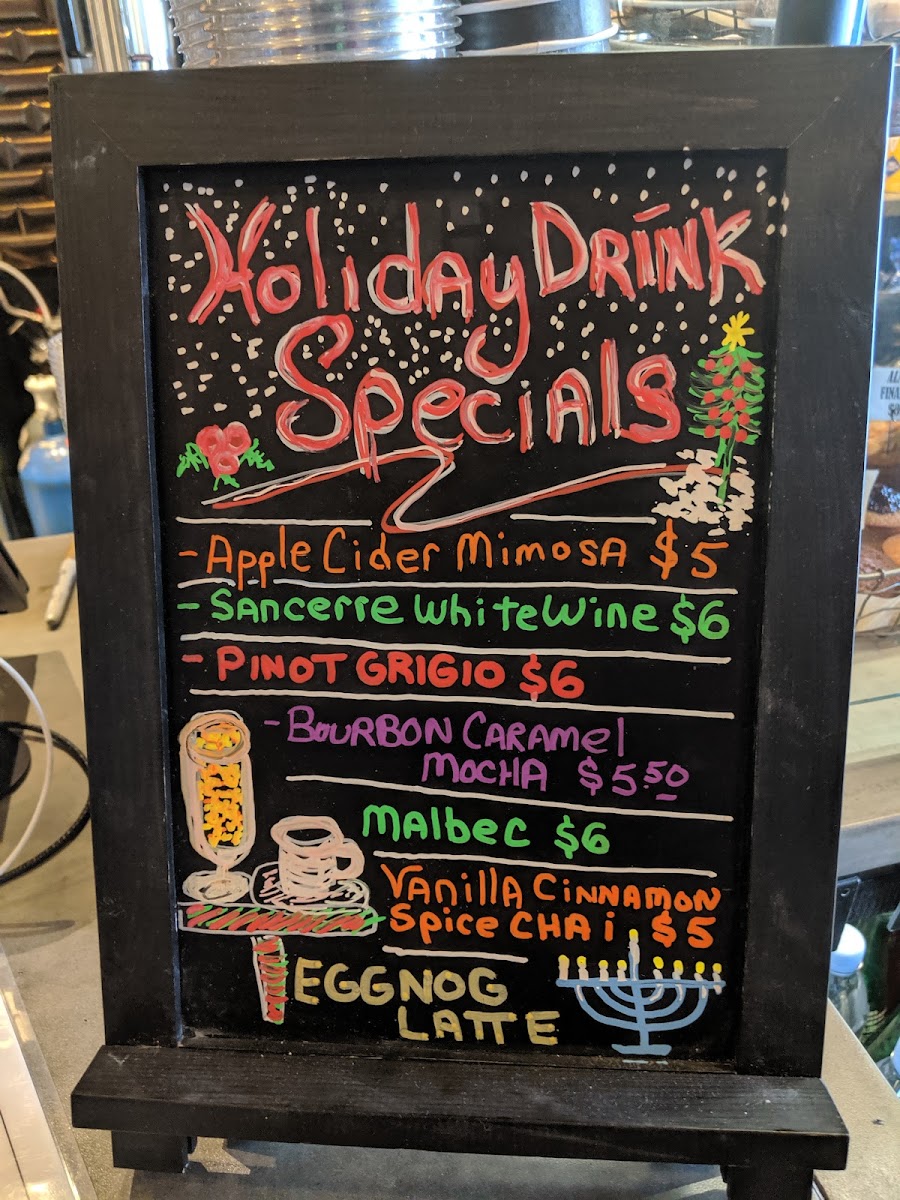 Holiday DRINK
Specials
- Apple Cider Mimosa $5
- Sancerre White Wine $6
- PINOT GRIGIO $6
- BOURBON CARAMel
MOCHA $5.50
Malbec $6
Vanilla Cinnamon
Spice CHAi $5
EGGNOG
LATTE